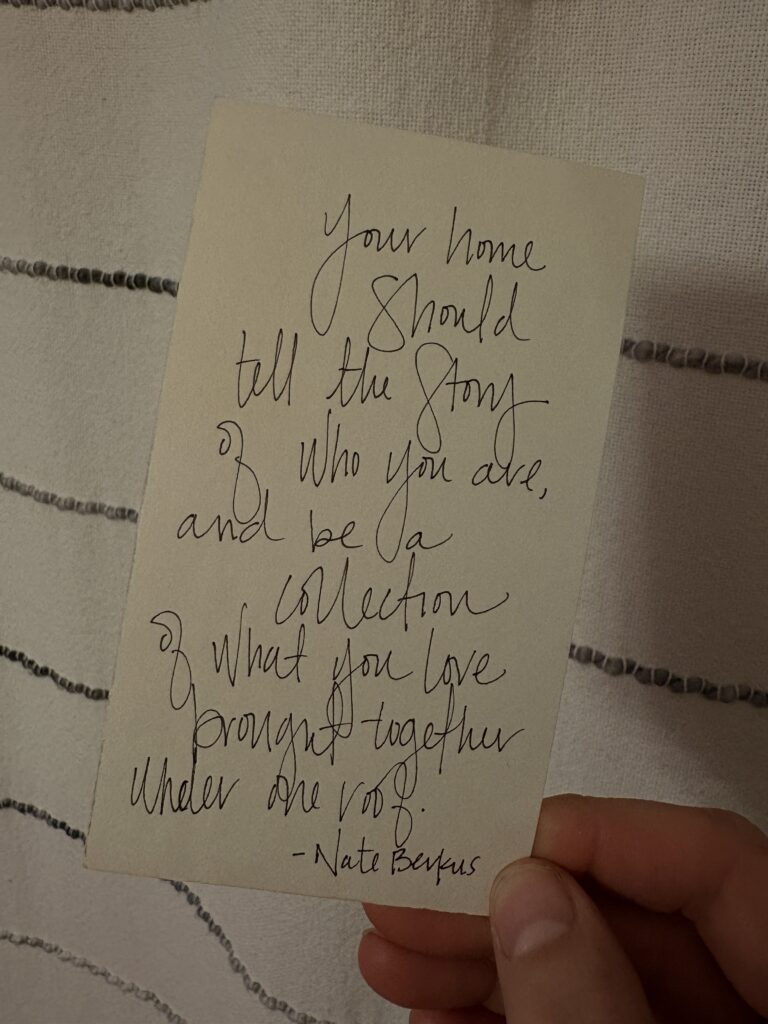 Your home
should
tell the story
of who you are,
and be a
collection
of what you love
brought together
under one roof.
- Nate Berkus